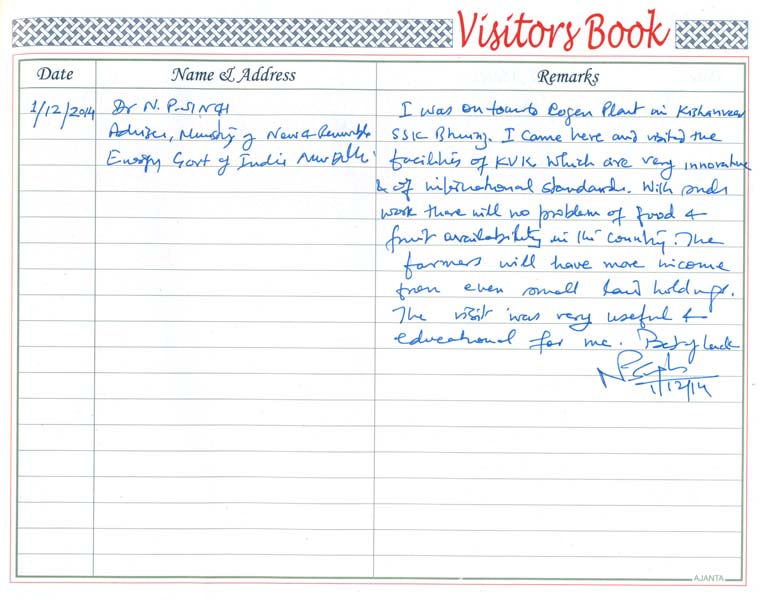 Visitors Book
Date
Name & Address
Remarks
1/12/2014
Dr N. P. SINGH
Adviser, Ministry of New & Renewable
Energy Govt of India New Delhi
I was on tour to Cogen Plant in Kisanveer
SSK Bhuinj. I came here and visited the
facilities of KVK which are very innovative
& of international standards. With such
work there will no problem of food &
fruit availability in the country. The
farmers will have more income
from even small land holdings.
The visit was very useful &
educational for me. Best of luck
1/12/14
AJANTA